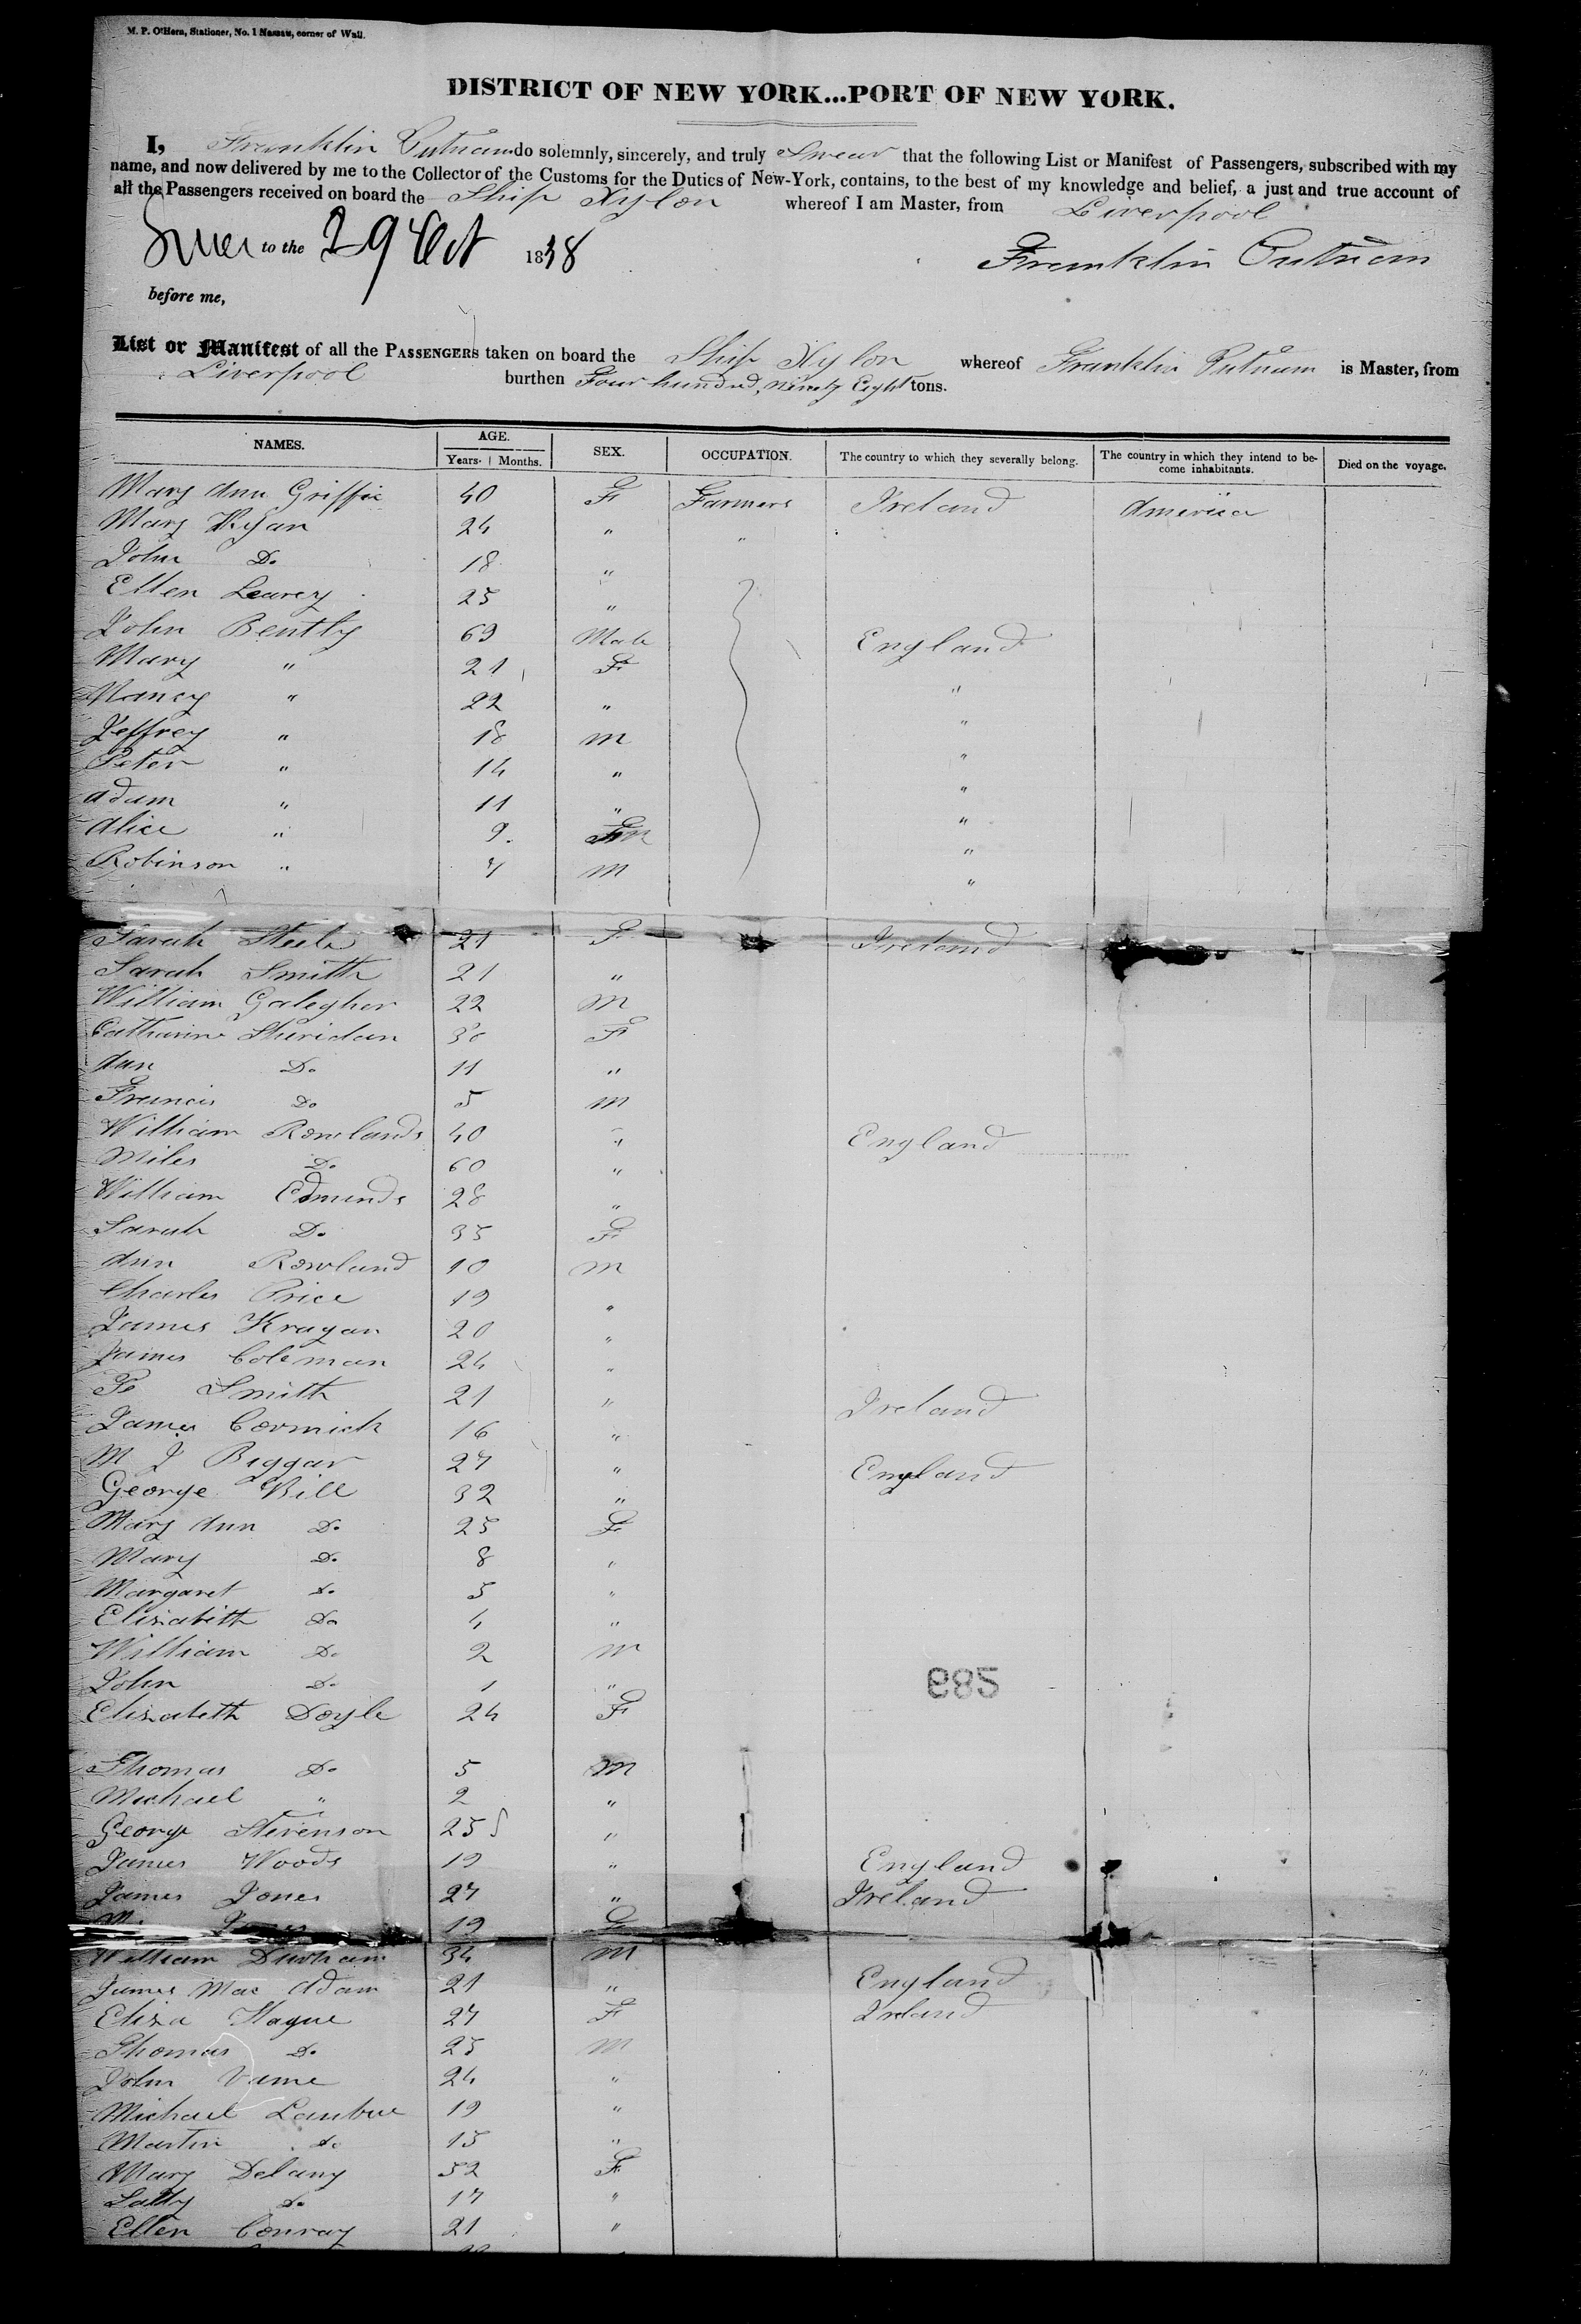 M. P. O'Hern, Stationer, No. 1 Nassau, corner of Wall.
DISTRICT OF NEW YORK...PORT OF NEW YORK.
I, Franklin Putnam do solemnly, sincerely, and truly Swear that the following List or Manifest of Passengers, subscribed with my
name, and now delivered by me to the Collector of the Customs for the Duties of New-York, contains, to the best of my knowledge and belief, a just and true account of
all the Passengers received on board the Ship Xylon whereof I am Master, from Liverpool
to the 29 Oct 1838
Franklin Putnam
before me,
List or Manifest of all the PASSENGERS taken on board the Ship Xylon whereof Franklin Putnam is Master, from
Liverpool burthen Four hundred, Ninety Eight tons.
NAMES. AGE. Years. Months. SEX. OCCUPATION. The country to which they severally belong. The country in which they intend to become inhabitants. Died on the voyage.
Mary Ann Griffin 40 F Farmers Ireland America
Mary Ryan 24 " "
John Do 18 "
Ellen Leavey 25 "
John Bently 69 Male England
Mary " 21 F "
Nancy " 22 " "
Jeffrey " 18 m "
Peter " 14 " "
Adam " 11 " "
Alice " 9 "
Robinson " 7 m "
Sarah Steele 21 F Ireland
Sarah Smith 21 "
William Galegher 22 M
Catharine Sheridan 30 F
Ann Do 11 "
Francis Do 5 m
William Rowlands 40 " England
Miles Do 60 "
William Edmunds 28 "
Sarah Do 35 F
Ann Rowland 10 m
Charles Price 19 "
James Kragan 20 "
James Coleman 24 "
Smith 21 " Ireland
James Cormick 16 "
M J Biggar 27 " England
George Bill 32 "
Mary Ann Do 25 F
Mary Do 8 "
Margaret Do 5 "
Elizabeth Do 4 "
William Do 2 m
John Do 1 "
Elizabeth Doyle 24 F
682
Thomas Do 5 M
Michael " 2 "
George Stevenson 25 "
James Woods 19 " England
James Jones 27 " Ireland
19
William Durham 34 M
James Mac Adam 21 " England
Eliza Hague 27 F Ireland
Thomas Do 25 M
John Vame 24 "
Michael 19 "
Martin Do 15 "
Mary Delany 52 F
Sally Do 17 "
Ellen Conray 21 "